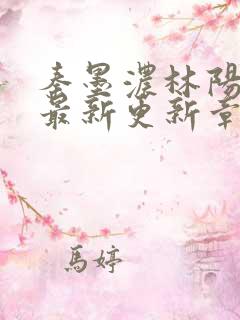 秦墨濃林陽
最新更新章
馬婷